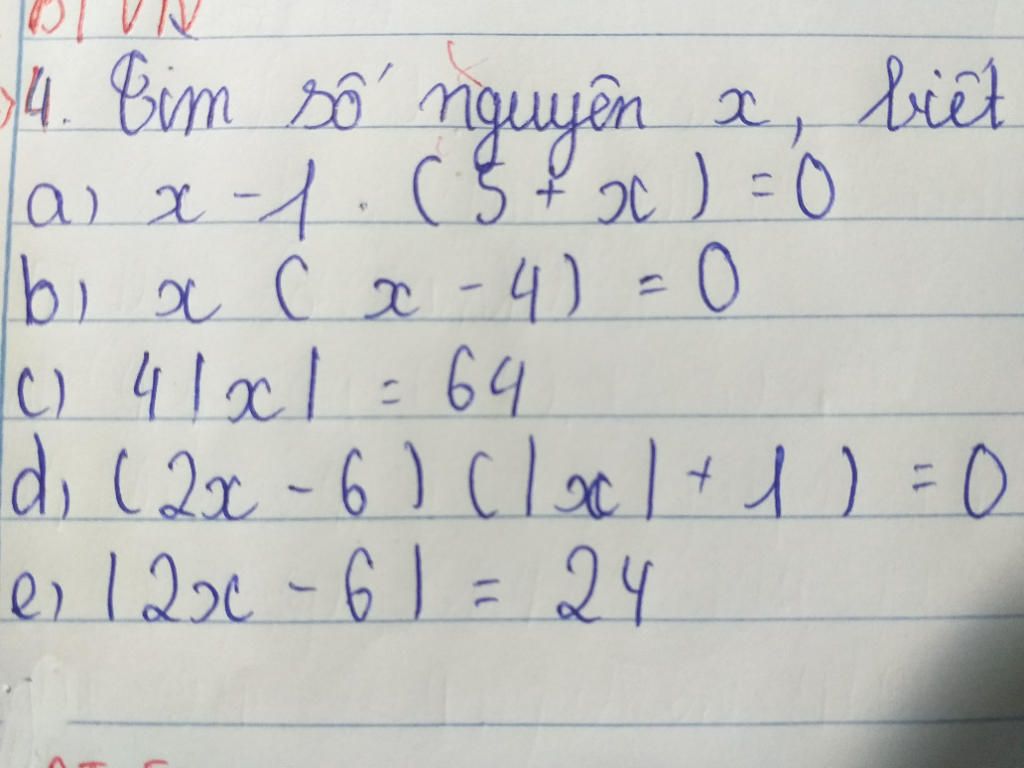 BTVN
4. Tìm số nguyên x, biết
a) x - 1 . (5 + x) = 0
b) x ( x - 4) = 0
c) 4|x| = 64
d) (2x - 6) (|x| + 1) = 0
e) |2x - 6| = 24